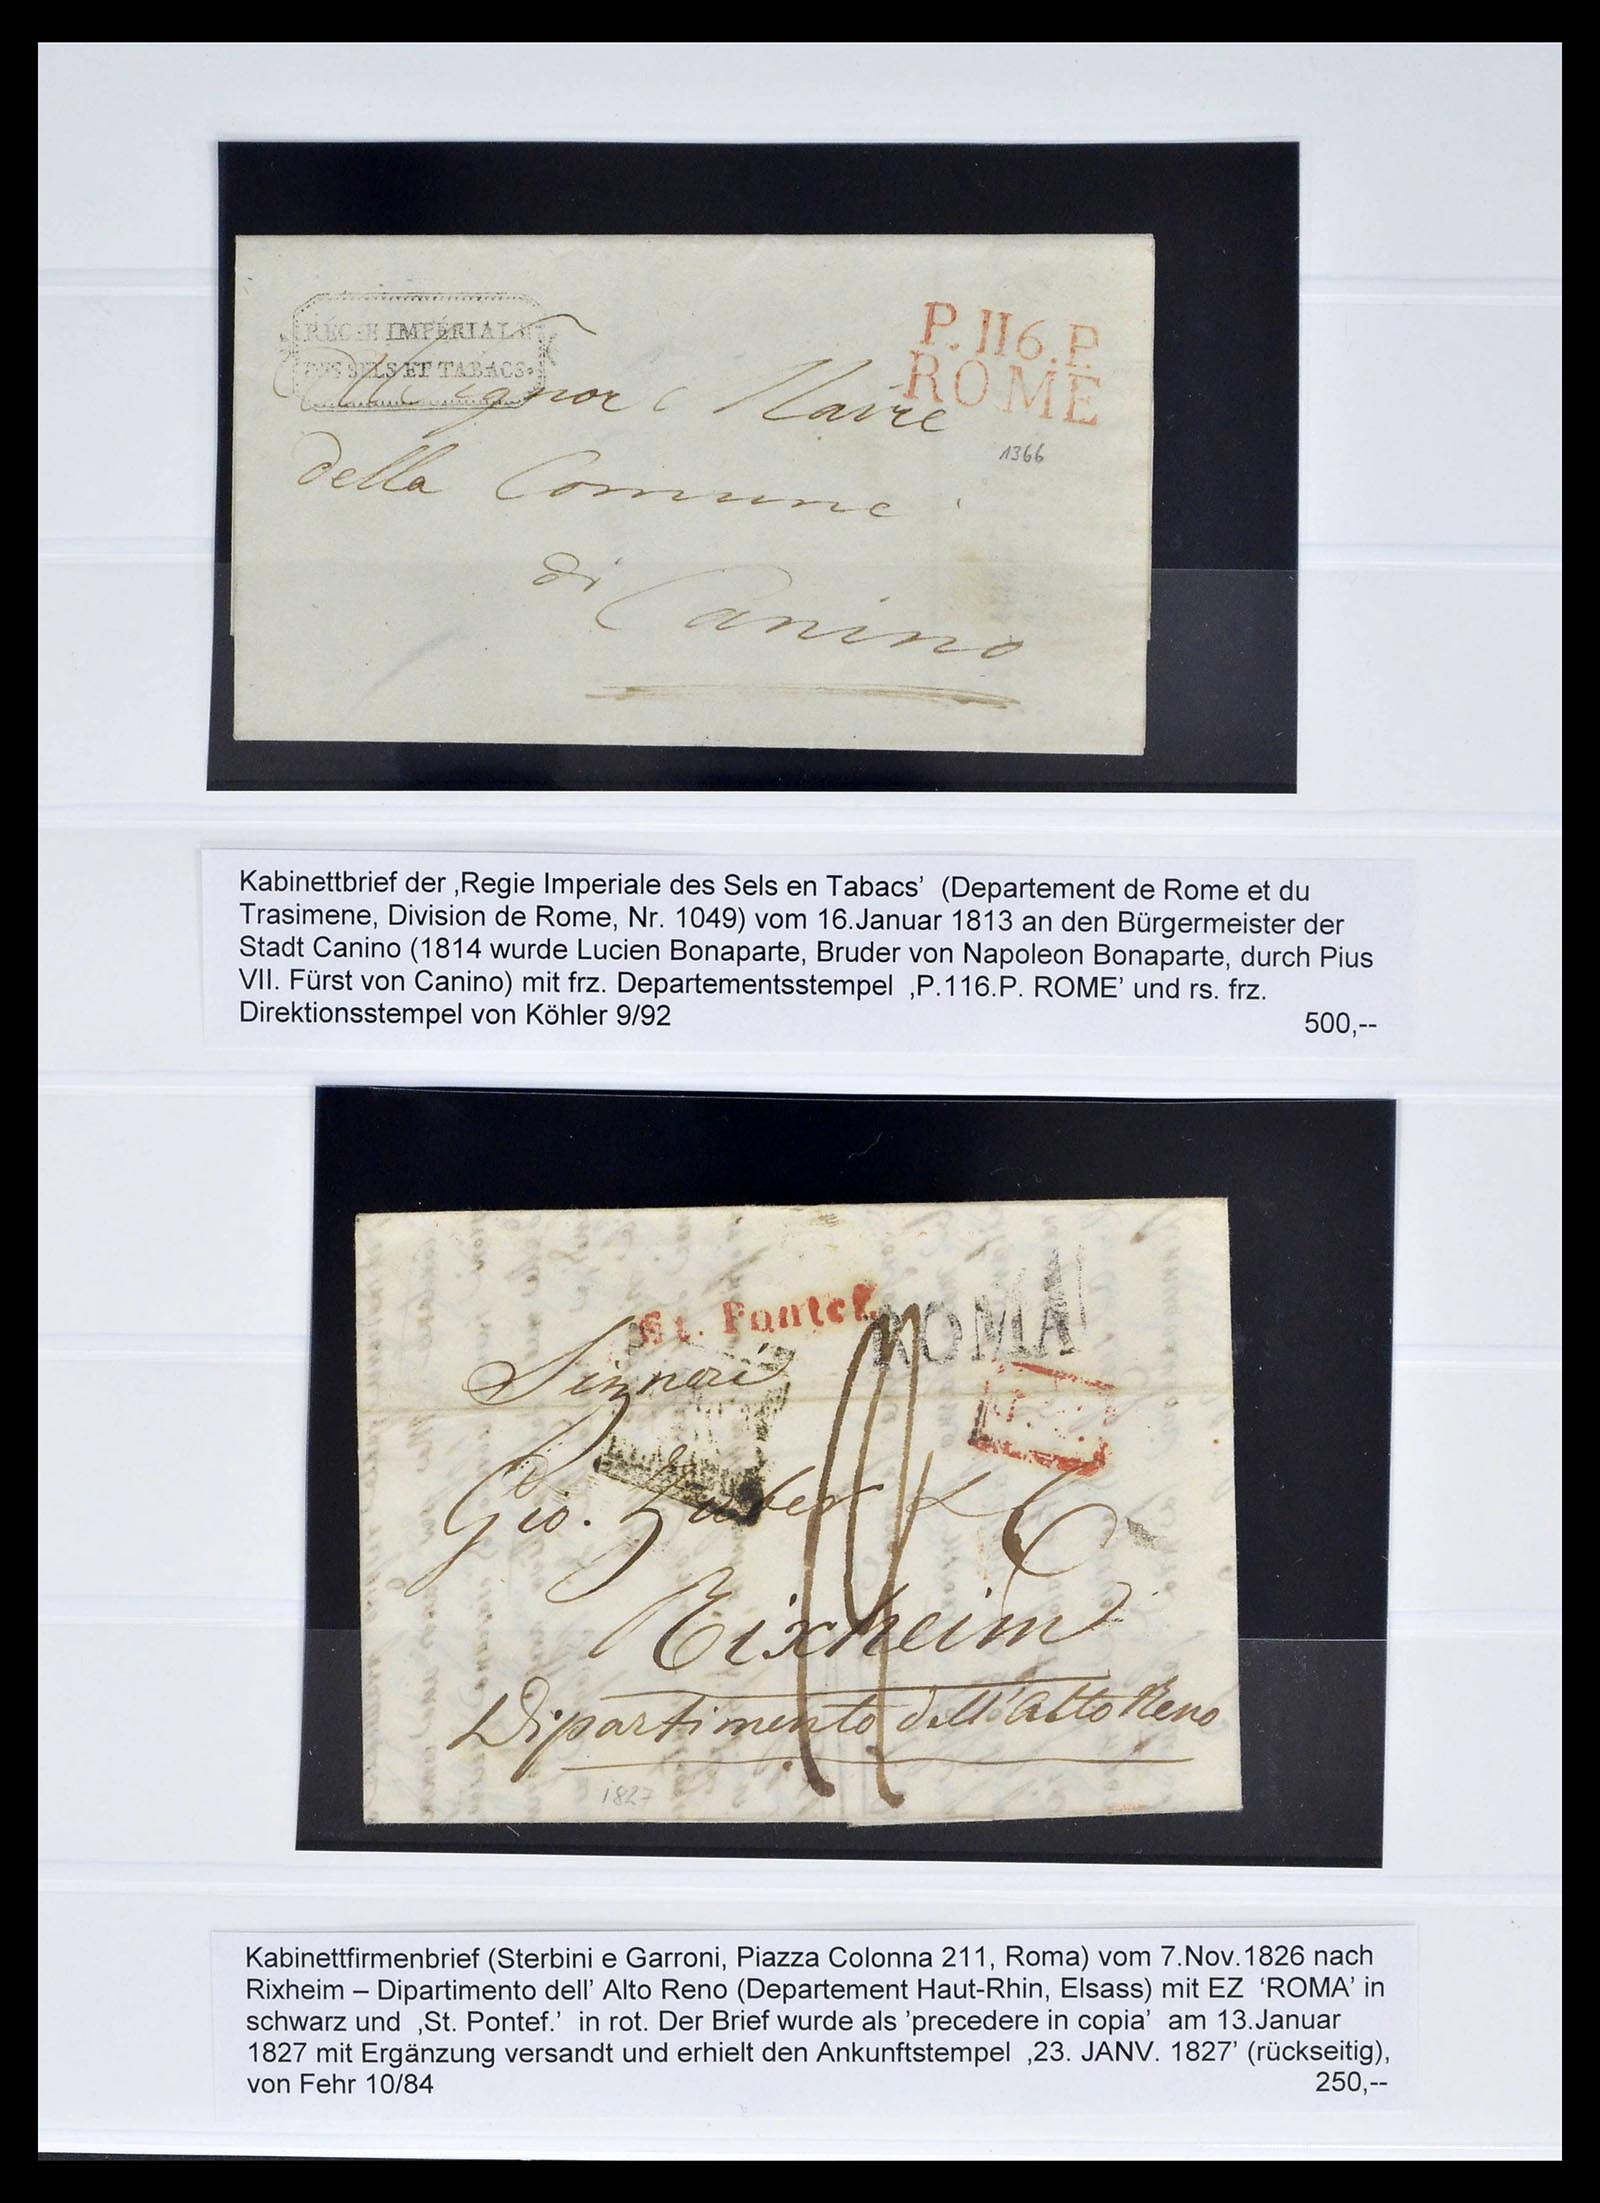 RÉGIE IMPÉRIALE
DES SELS ET TABACS.
P.116.P.
ROME
Al Signore Maire
1366
della Comune
di
Canino
Kabinettbrief der ‚Regie Imperiale des Sels en Tabacs’ (Departement de Rome et du
Trasimene, Division de Rome, Nr. 1049) vom 16.Januar 1813 an den Bürgermeister der
Stadt Canino (1814 wurde Lucien Bonaparte, Bruder von Napoleon Bonaparte, durch Pius
VII. Fürst von Canino) mit frz. Departementsstempel ‚P.116.P. ROME’ und rs. frz.
Direktionsstempel von Köhler 9/92
500,--
St. Pontef.
ROMA
Signori
Gio. Zuber & C
Rixheim
Dipartimento dell'Alto Reno
1827
Kabinettfirmenbrief (Sterbini e Garroni, Piazza Colonna 211, Roma) vom 7.Nov.1826 nach
Rixheim – Dipartimento dell’ Alto Reno (Departement Haut-Rhin, Elsass) mit EZ ‘ROMA’ in
schwarz und ‚St. Pontef.’ in rot. Der Brief wurde als ’precedere in copia’ am 13.Januar
1827 mit Ergänzung versandt und erhielt den Ankunftstempel ‚23. JANV. 1827’ (rückseitig),
von Fehr 10/84
250,--